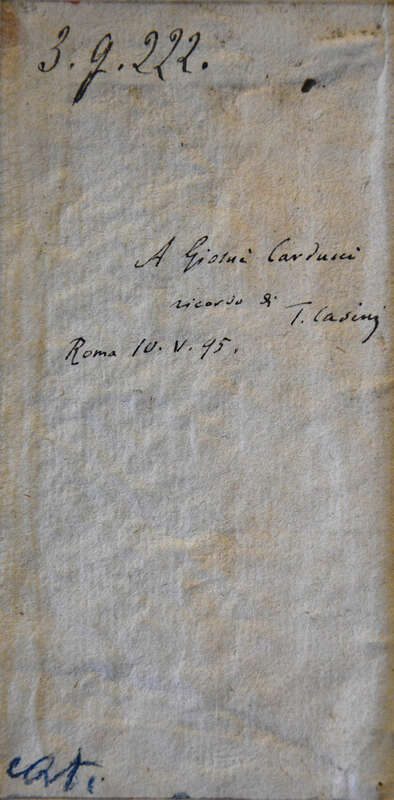 3. g. 222.
A Giosuè Carducci
ricordo di
T. Casini
Roma 10. V. 95.
cat.